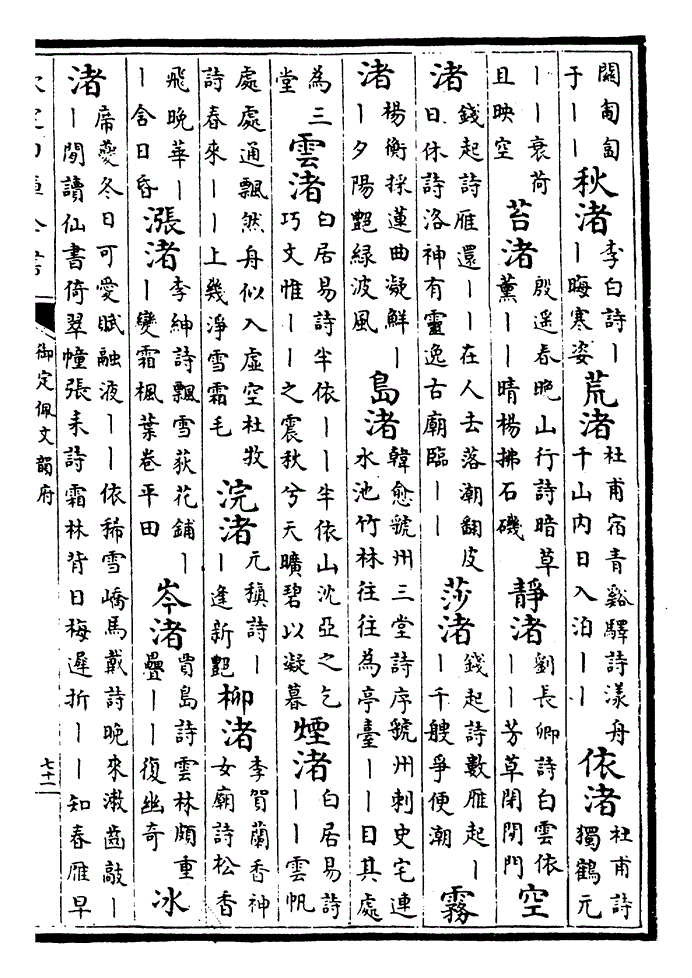 匐匐
于｜｜秋渚李白詩｜｜晦寒姿荒渚杜甫宿青谿驛詩漾舟千山内日入泊｜｜依渚杜甫詩獨鶴元
｜｜衰荷且映空苔渚殷遥春晚山行詩暗草薫｜｜｜晴楊拂石磯靜渚劉長卿詩白雲依｜｜芳草閉閒門空
渚錢起詩雁還｜｜在人去落潮翻皮日休詩洛神有靈逸古廟臨｜｜莎渚錢起詩數雁起｜｜千艘爭便潮霧
渚楊衡採蓮曲凝鮮｜｜夕陽艶緑波風島渚韓愈虢州三堂詩序虢州刺史宅連水池竹林往往為亭臺｜｜目其處
為三堂雲渚白居易詩半依｜｜半依山沈亞之乞巧文惟｜｜之震秋兮天曠碧以凝暮煙渚白居易詩｜｜雲帆
處處通飄然舟似入虚空杜牧詩春來｜｜上幾淨雪霜毛浣渚元稹詩｜｜逢新艶柳渚李賀蘭香神女廟詩松香
飛晚華｜｜含日昏漲渚李紳詩飄雪荻花鋪｜｜變霜楓葉卷平田岑渚賈島詩雲林頗重疊｜｜復幽奇冰
渚席夔冬日可愛賦融液｜｜依稀雪嶠馬戴詩晚來漱齒敲｜｜閒讀仙書倚翠幢張耒詩霜林背日梅遲折｜｜知春雁早
御定佩文韻府
七十一